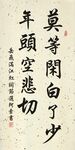 莫等閑白了少
年頭空悲切
岳飛滿江紅詞節選 書